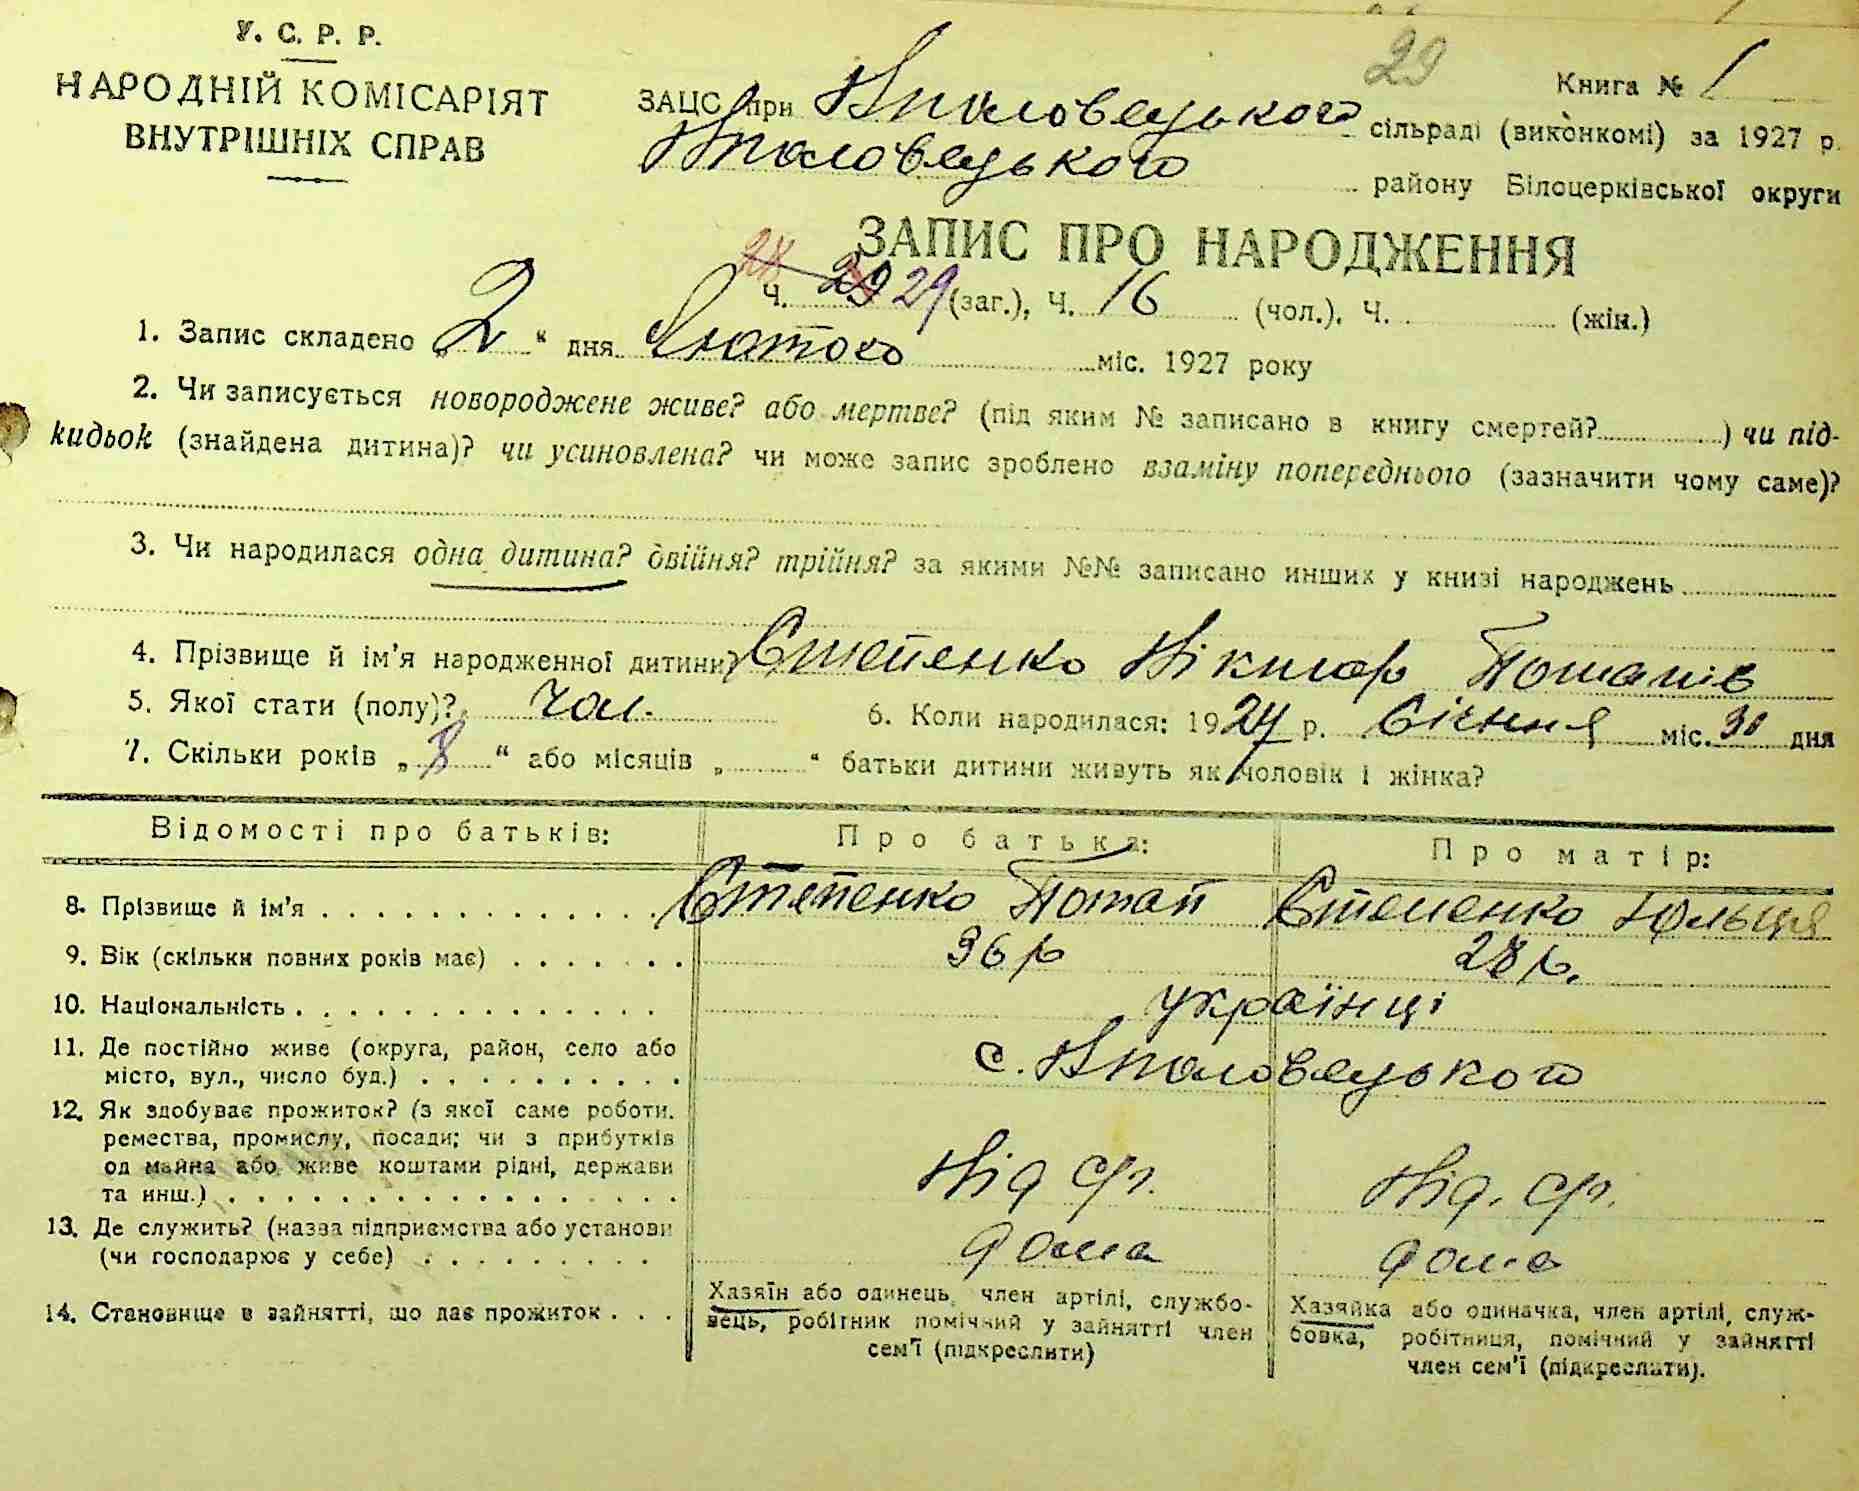 У. С. Р. Р.
НАРОДНІЙ КОМІСАРІЯТ
ВНУТРІШНІХ СПРАВ
29
Книга № 1
ЗАЦС при Вполовецького сільраді (виконкомі) за 1927 р.
Вполовецького району Білоцерківської округи
ЗАПИС ПРО НАРОДЖЕННЯ
28
Ч. 29 29 (заг.), Ч. 16 (чол.), Ч. (жін.)
1. Запис складено „2“ дня Лютого міс. 1927 року
2. Чи записується новороджене живе? або мертве? (під яким № записано в книгу смертей?) чи під-
кидьок (знайдена дитина)? чи усиновлена? чи може запис зроблено взаміну попереднього (зазначити чому саме)?
3. Чи народилася одна дитина? двійня? трійня? за якими №№ записано инших у книзі народжень
4. Прізвище й ім'я народженної дитини? Степенко Нікіпор Потапів
5. Якої стати (полу)? Чол. 6. Коли народилася: 1927 р. Січння міс. 30 дня
7. Скільки років „8“ або місяців „ “ батьки дитини живуть як чоловік і жінка?
Відомості про батьків: Про батька: Про матір:
8. Прізвище й ім'я Степенко Потап Степенко
9. Вік (скільки повних років має) 36 р 28 р.
10. Національність українці
11. Де постійно живе (округа, район, село або
місто, вул., число буд.) с. Вполовецького
12. Як здобуває прожиток? (з якої саме роботи,
ремества, промислу, посади; чи з прибутків
од майна або живе коштами рідні, держави
та инш.) Від ср. Від. ср.
13. Де служить? (назва підприємства або установи
(чи господарює у себе) дома дома
14. Становище в зайнятті, що дає прожиток
Хазяїн або одинець, член артілі, службо-
вець, робітник помічний у зайнятті член
сем'ї (підкреслити)
Хазяйка або одиначка, член артілі, служ-
бовка, робітниця, помічний у зайнятті
член сем'ї (підкреслити).